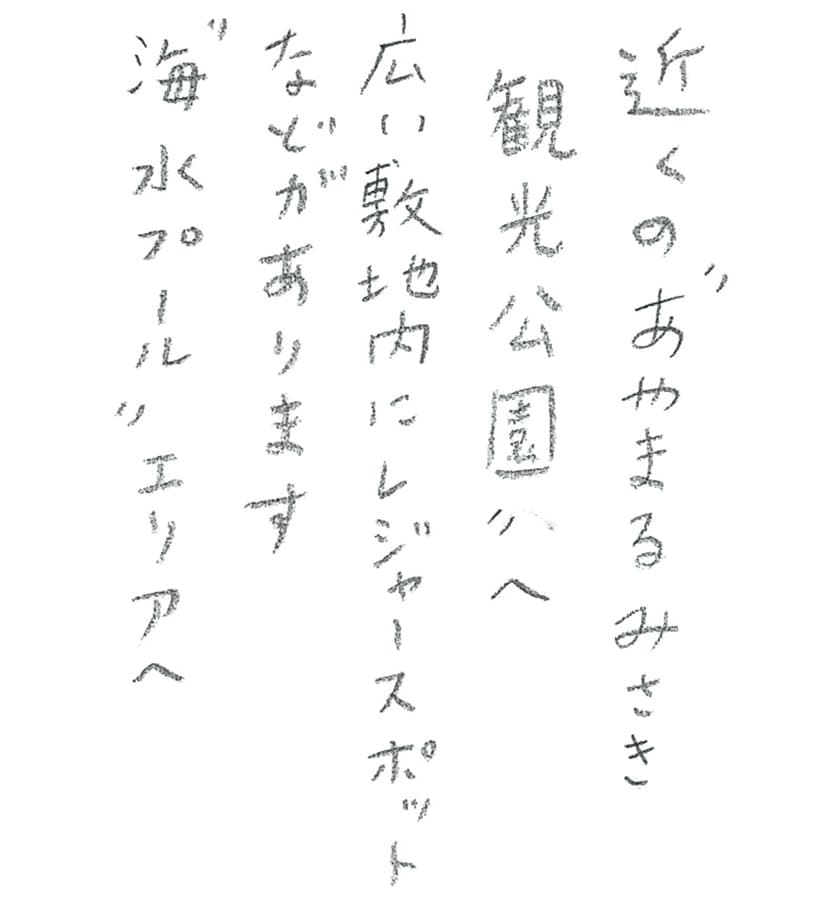 近くの〝あやまるみさき
観光公園〟へ
広い敷地内にレジャースポット
などがあります
〝海水プール〟エリアへ